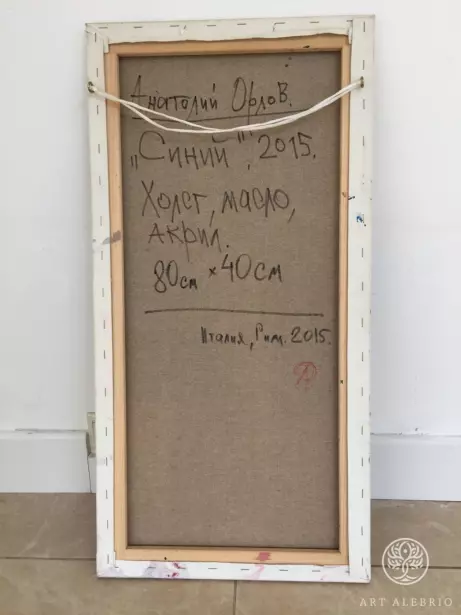 Анатолий Орлов.
„Синий", 2015.
Холст, масло,
акрил.
80см × 40см
Италия, Рим. 2015.
ART ALEBRIO